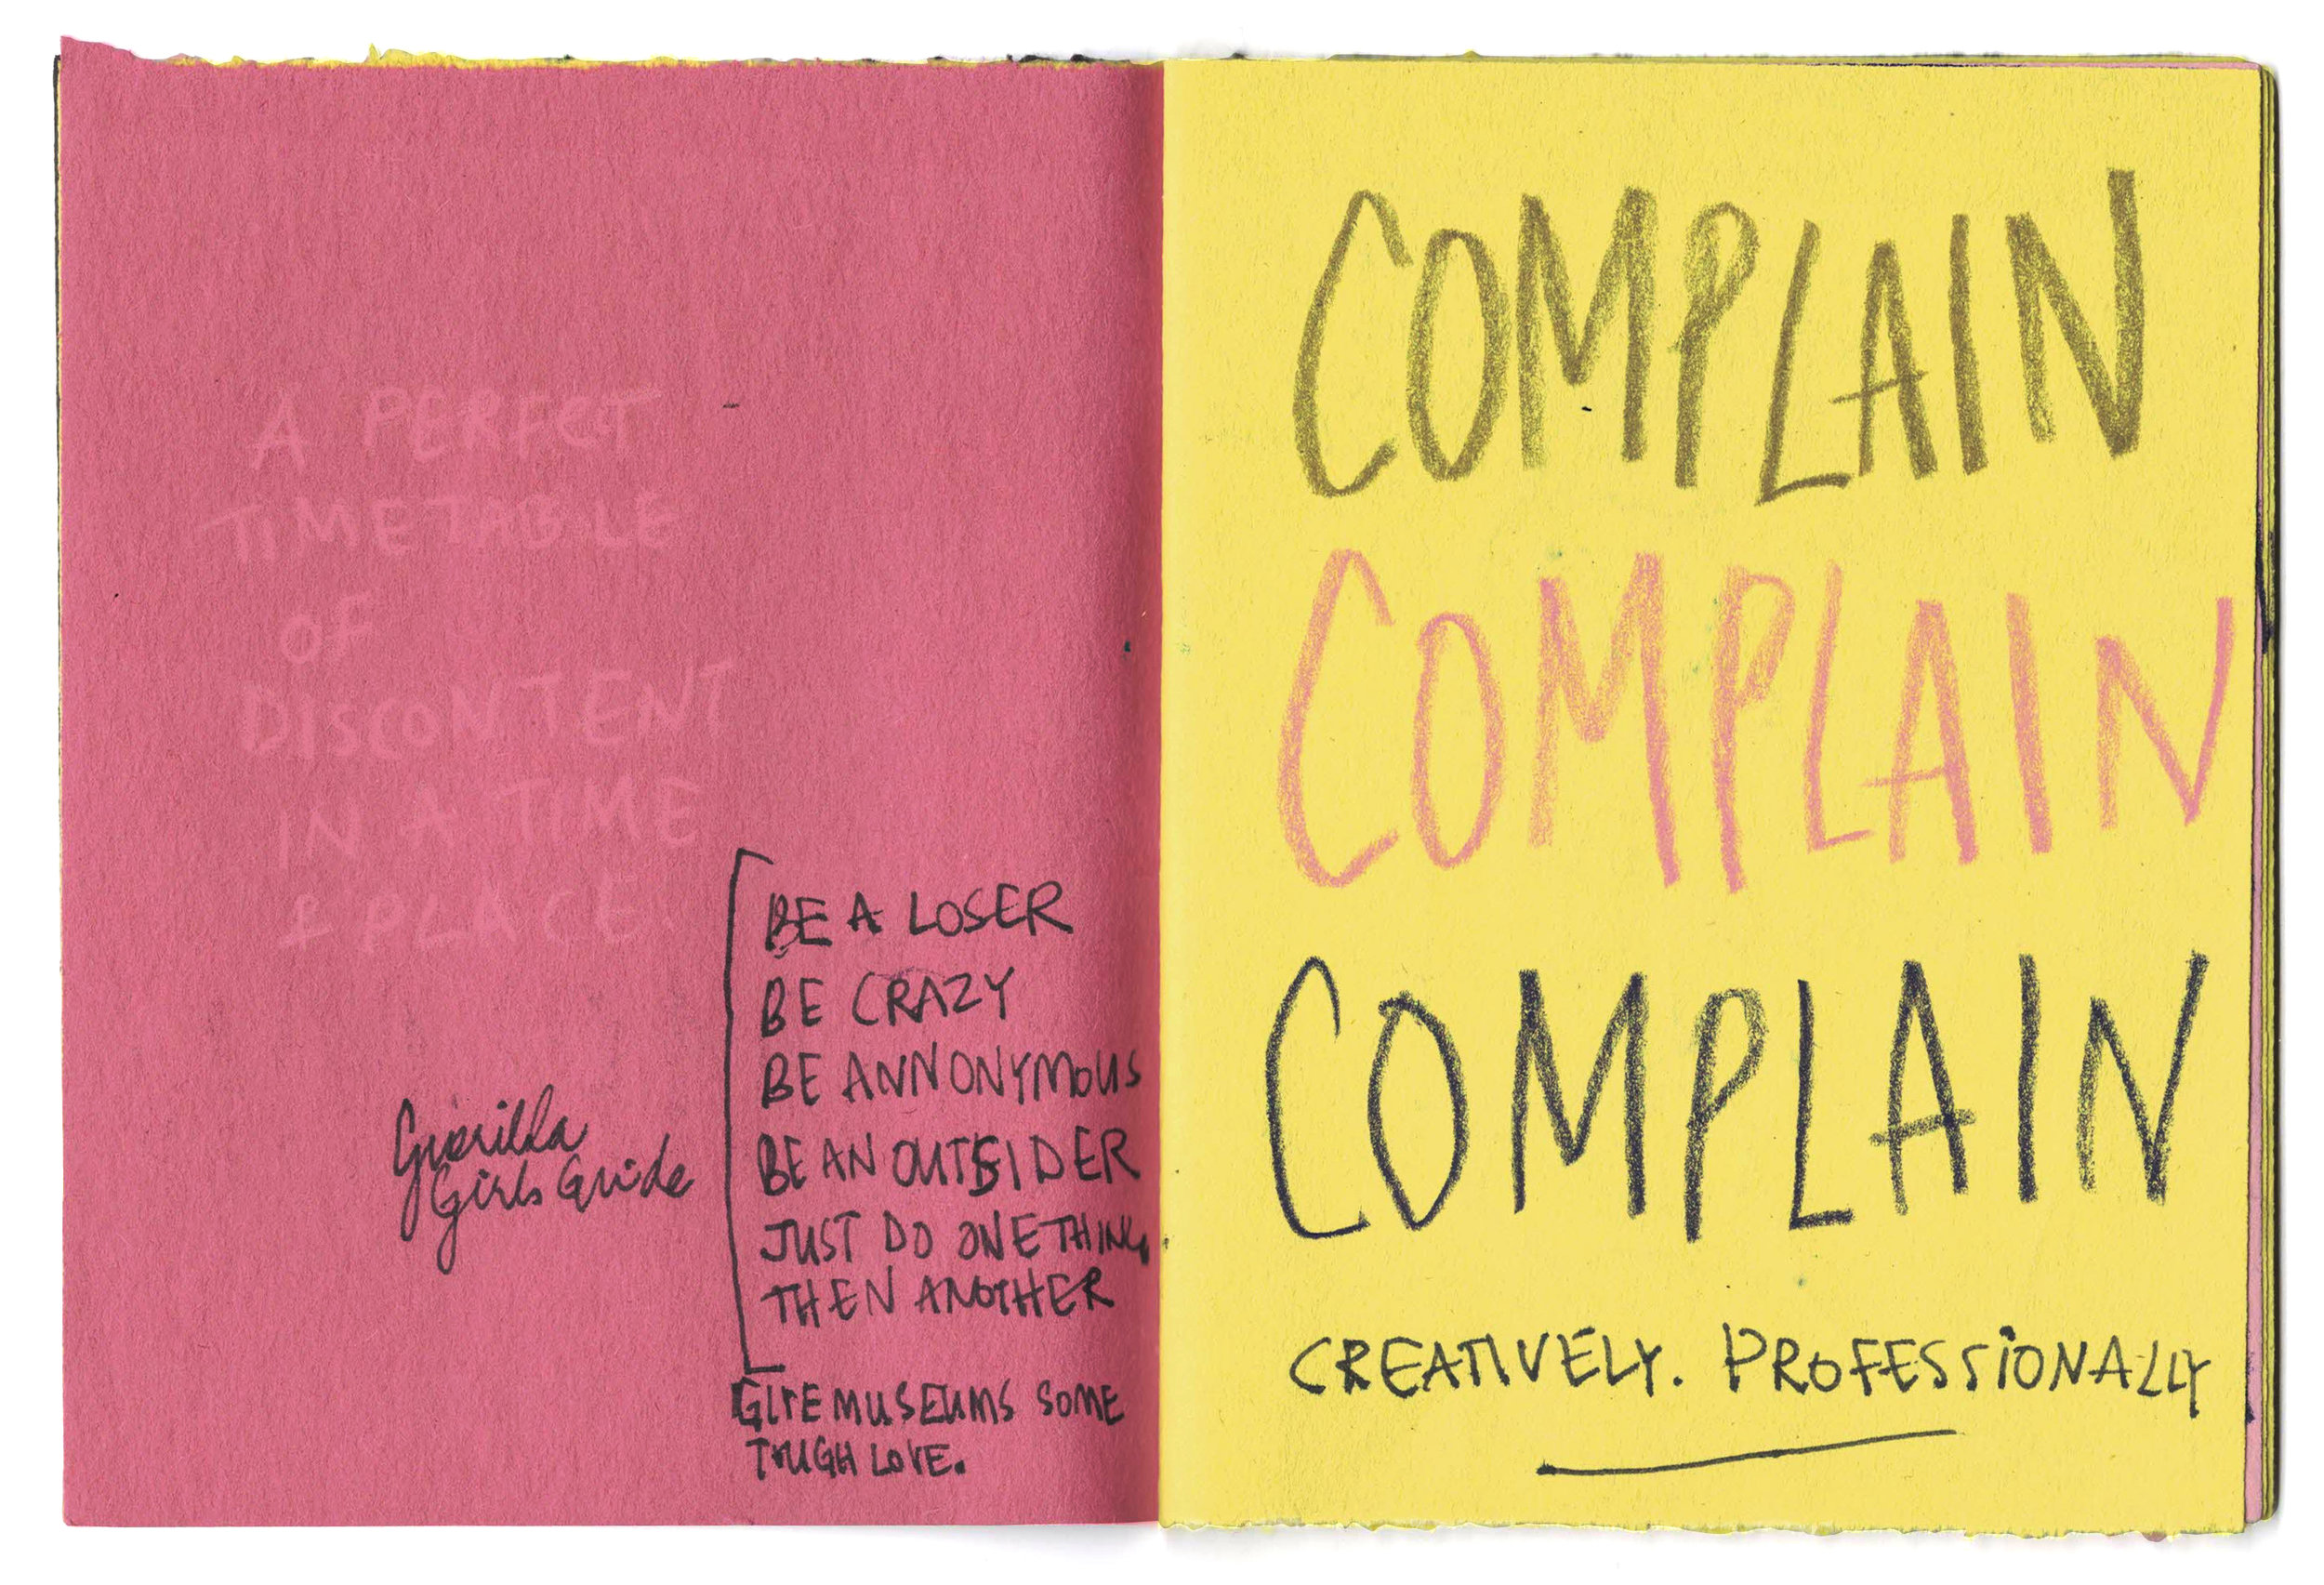 A PERFECT
TIMETABLE
OF
DISCONTENT
IN A TIME
& PLACE.
Guerilla
Girls Guide
BE A LOSER
BE CRAZY
BE ANNONYMOUS
BE AN OUTSIDER
JUST DO ONE THING,
THEN ANOTHER
GIVE MUSEUMS SOME
TOUGH LOVE.
COMPLAIN
COMPLAIN
COMPLAIN
CREATIVELY. PROFESSIONALLY